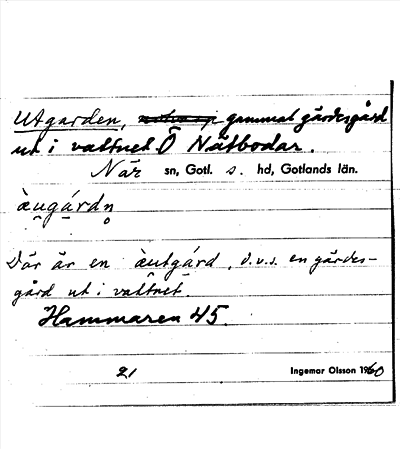 Utgarden, gammal gärdesgård
ut i vattnet Ö Nätbodar.
När sn, Gotl. s. hd, Gotlands län.
àugárdn̥
Där är en àutgárd, d.v.s. en gärdes-
gård ut i vattnet.
Hammaren 45.
21 Ingemar Olsson 1960